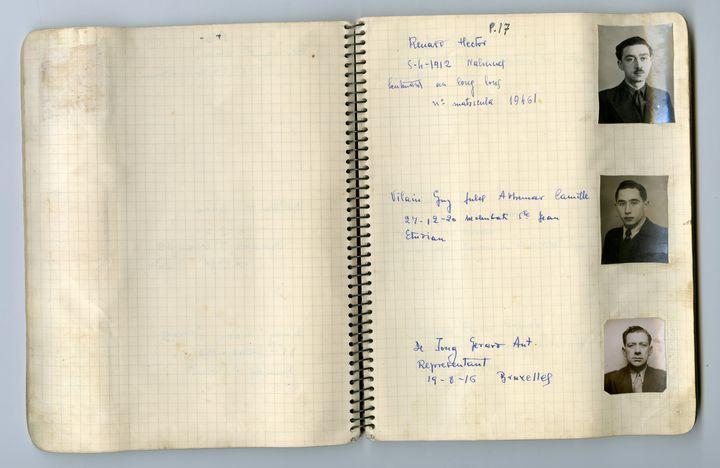 P.17
Renard Hector
5-4-1912 Nalinnes
n° matricula 19461
Vilain Guy Jules Adhemar Camille
27-12-20 Molenbeek St Jean
Etudian
de Jong Gerard Ant.
Representant
19-8-16 Bruxelles